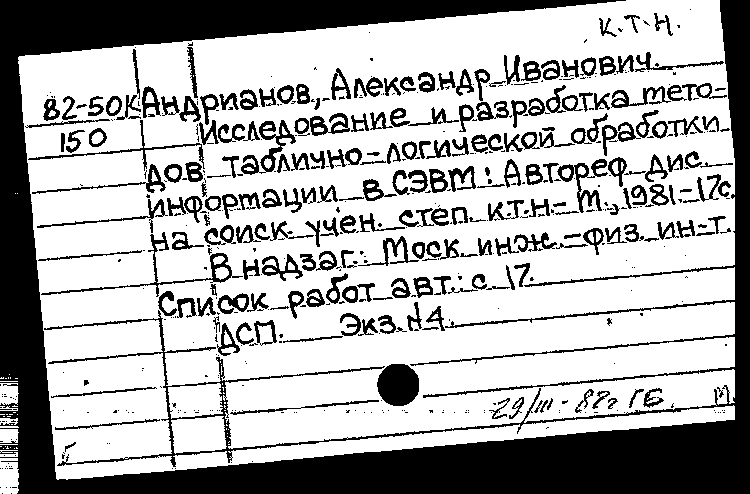 К.Т.Н.
82-50К Андрианов, Александр Иванович.
150 Исследование и разработка мето-
дов таблично-логической обработки
информации в СЭВМ: Автореф. дис.
на соиск. учен. степ. к.т.н.- М., 1981.-17с.
В надзаг.: Моск. инж.-физ. ин-т.
Список работ авт.: с 17.
ДСП. Экз. №4.
29/III-82г ГБ. М.